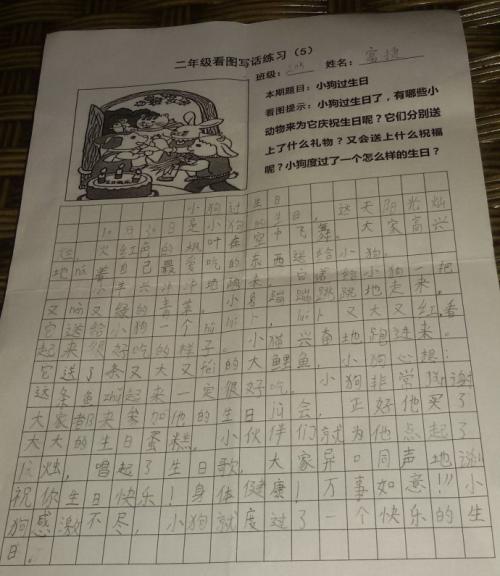 二年级看图写话练习（5）
班级： 姓名：
本期题目：小狗过生日
看图提示：小狗过生日了，有哪些小
动物来为它庆祝生日呢？它们分别送
上了什么礼物？又会送上什么祝福
呢？小狗度过了一个怎么样的生日？
小狗过生日
10月30日是小狗的生日，这天阳光灿
烂，火红色的枫叶在空中飞舞。大家高兴
地 着自己最爱吃的东西送给小狗。
小 兴冲冲地 来 给小狗一把
又 又绿的青菜。小 蹦蹦跳跳地走来，
它送给小狗一个 卜， 卜又大又红，看
起来很好吃的样子。小猫兴奋地跑过来。
它送了条又大又 的大鲤鱼，小狗心想：
这条鱼 起来一定很好吃。小狗非常
大家都来参加他的生日 会，正好他买了
大大的生日蛋糕，小伙伴们就为他点起了
烛，唱起了生日歌，大家异口同声地说
祝你生日快乐！身体健康！万事如意！！！小
狗感激不尽，小狗就度过了一个快乐的生
日。